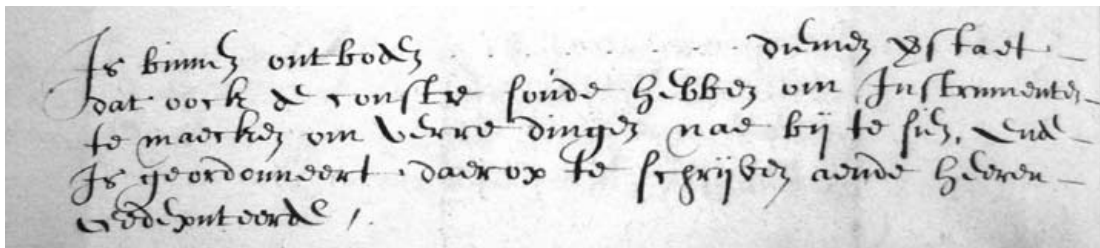 Is binnen ontboden . . . . . . . diemen verstaet
dat oock de conste soude hebben om Instrumenten
te maecken om verre dingen nae bij te sien, ende
Is geordonneert daerop te schrijven aende heeren
Gedeputeerde /.